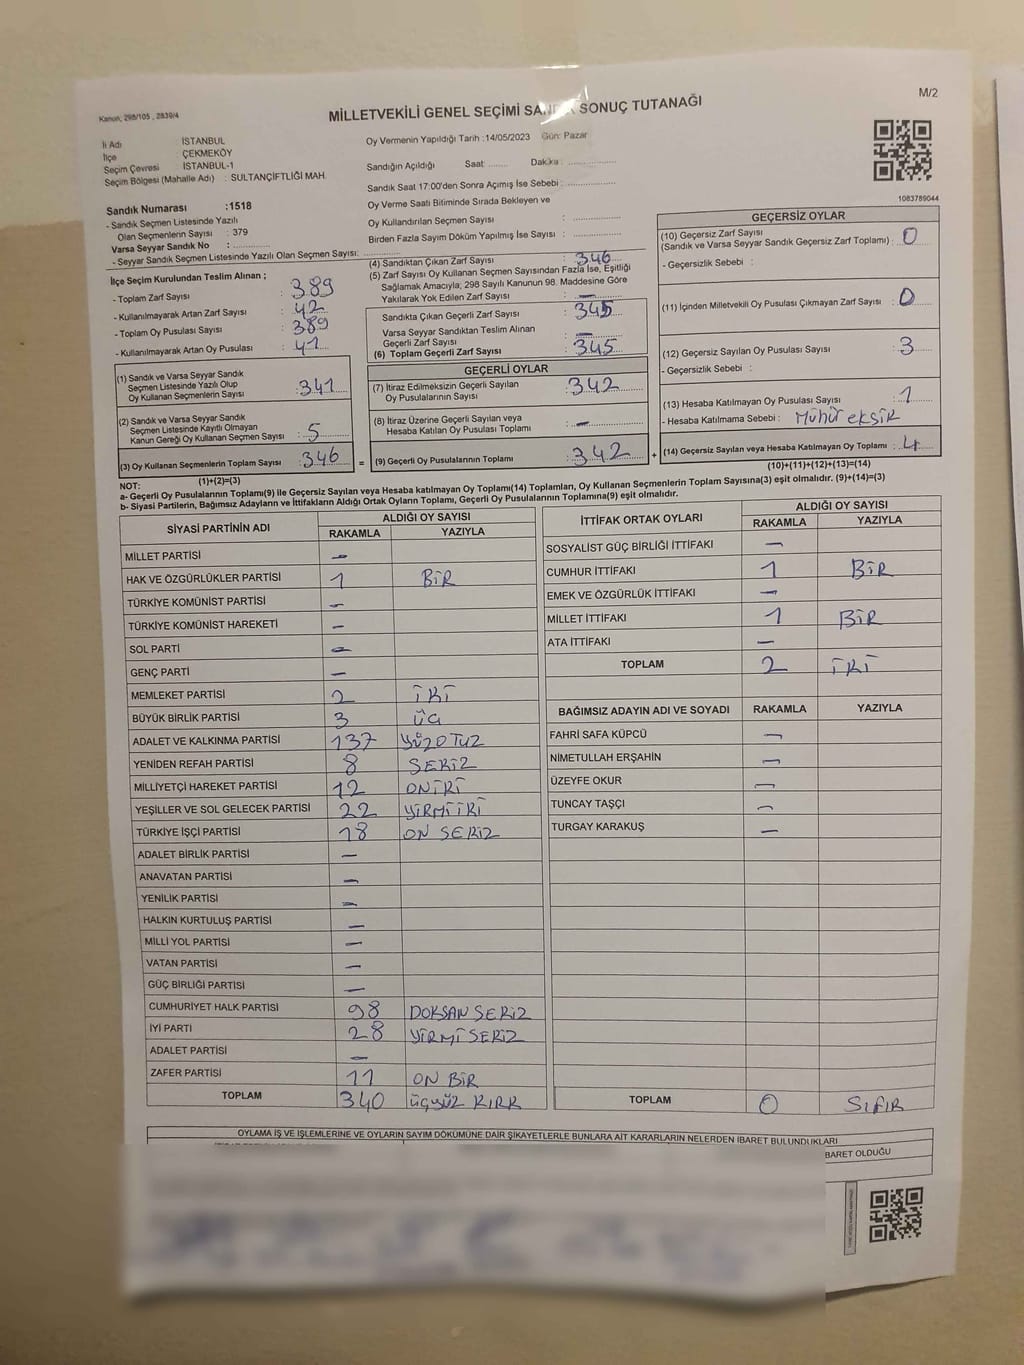 Kanun, 298/105 , 2839/4
MİLLETVEKİLİ GENEL SEÇİMİ SONUÇ TUTANAĞI
M/2
İl Adı : İSTANBUL
İlçe : ÇEKMEKÖY
Seçim Çevresi : İSTANBUL-1
Seçim Bölgesi (Mahalle Adı) : SULTANÇİFTLİĞİ MAH.
Sandık Numarası :1518
- Sandık Seçmen Listesinde Yazılı
Olan Seçmenlerin Sayısı : 379
Varsa Seyyar Sandık No :
- Seyyar Sandık Seçmen Listesinde Yazılı Olan Seçmen Sayısı:
Oy Vermenin Yapıldığı Tarih :14/05/2023 Gün: Pazar
Sandığın Açıldığı Saat: Dakika :
Sandık Saat 17:00'den Sonra Açımış İse Sebebi :
Oy Verme Saati Bitiminde Sırada Bekleyen ve
Oy Kullandırılan Seçmen Sayısı :
Birden Fazla Sayım Döküm Yapılmış İse Sayısı :
1083789044
İlçe Seçim Kurulundan Teslim Alınan ;
- Toplam Zarf Sayısı : 389
- Kullanılmayarak Artan Zarf Sayısı : 42
- Toplam Oy Pusulası Sayısı : 389
- Kullanılmayarak Artan Oy Pusulası : 41
(1) Sandık ve Varsa Seyyar Sandık
Seçmen Listesinde Yazılı Olup
Oy Kullanan Seçmenlerin Sayısı : 341
(2) Sandık ve Varsa Seyyar Sandık
Seçmen Listesinde Kayıtlı Olmayan
Kanun Gereği Oy Kullanan Seçmen Sayısı : 5
(3) Oy Kullanan Seçmenlerin Toplam Sayısı : 346
(1)+(2)=(3)
(4) Sandıktan Çıkan Zarf Sayısı : 346
(5) Zarf Sayısı Oy Kullanan Seçmen Sayısından Fazla İse, Eşitliği
Sağlamak Amacıyla; 298 Sayılı Kanunun 98. Maddesine Göre
Yakılarak Yok Edilen Zarf Sayısı : –
Sandıkta Çıkan Geçerli Zarf Sayısı : 345
Varsa Seyyar Sandıktan Teslim Alınan
Geçerli Zarf Sayısı : –
(6) Toplam Geçerli Zarf Sayısı : 345
GEÇERLİ OYLAR
(7) İtiraz Edilmeksizin Geçerli Sayılan
Oy Pusulasının Sayısı : 342
(8) İtiraz Üzerine Geçerli Sayılan veya
Hesaba Katılan Oy Pusulası Toplamı : –
= (9) Geçerli Oy Pusulalarının Toplamı : 342 +
GEÇERSİZ OYLAR
(10) Geçersiz Zarf Sayısı
(Sandık ve Varsa Seyyar Sandık Geçersiz Zarf Toplamı) : 0
- Geçersizlik Sebebi :
(11) İçinden Milletvekili Oy Pusulası Çıkmayan Zarf Sayısı : 0
(12) Geçersiz Sayılan Oy Pusulası Sayısı : 3
- Geçersizlik Sebebi :
(13) Hesaba Katılmayan Oy Pusulası Sayısı : 1
- Hesaba Katılmama Sebebi : Mühür eksik
(14) Geçersiz Sayılan veya Hesaba Katılmayan Oy Toplamı : 4
(10)+(11)+(12)+(13)=(14)
NOT:
a- Geçerli Oy Pusulalarının Toplamı(9) ile Geçersiz Sayılan veya Hesaba katılmayan Oy Toplamı(14) Toplamları, Oy Kullanan Seçmenlerin Toplam Sayısına(3) eşit olmalıdır. (9)+(14)=(3)
b- Siyasi Partilerin, Bağımsız Adayların ve İttifakların Aldığı Ortak Oyların Toplamı, Geçerli Oy Pusulalarının Toplamına(9) eşit olmalıdır.
SİYASİ PARTİNİN ADI ALDIĞI OY SAYISI
RAKAMLA YAZIYLA
MİLLET PARTİSİ –
HAK VE ÖZGÜRLÜKLER PARTİSİ 1 BİR
TÜRKİYE KOMÜNİST PARTİSİ –
TÜRKİYE KOMÜNİST HAREKETİ –
SOL PARTİ –
GENÇ PARTİ –
MEMLEKET PARTİSİ 2 İKİ
BÜYÜK BİRLİK PARTİSİ 3 ÜÇ
ADALET VE KALKINMA PARTİSİ 137 YÜZOTUZ
YENİDEN REFAH PARTİSİ 8 SEKİZ
MİLLİYETÇİ HAREKET PARTİSİ 12 ONİKİ
YEŞİLLER VE SOL GELECEK PARTİSİ 22 YİRMİİKİ
TÜRKİYE İŞÇİ PARTİSİ 18 ON SEKİZ
ADALET BİRLİK PARTİSİ –
ANAVATAN PARTİSİ –
YENİLİK PARTİSİ –
HALKIN KURTULUŞ PARTİSİ –
MİLLİ YOL PARTİSİ –
VATAN PARTİSİ –
GÜÇ BİRLİĞİ PARTİSİ –
CUMHURİYET HALK PARTİSİ 98 DOKSAN SEKİZ
İYİ PARTİ 28 YİRMİ SEKİZ
ADALET PARTİSİ –
ZAFER PARTİSİ 11 ON BİR
TOPLAM 340 ÜÇYÜZ KIRK
İTTİFAK ORTAK OYLARI ALDIĞI OY SAYISI
RAKAMLA YAZIYLA
SOSYALİST GÜÇ BİRLİĞİ İTTİFAKI –
CUMHUR İTTİFAKI 1 BİR
EMEK VE ÖZGÜRLÜK İTTİFAKI –
MİLLET İTTİFAKI 1 BİR
ATA İTTİFAKI –
TOPLAM 2 İKİ
BAĞIMSIZ ADAYIN ADI VE SOYADI RAKAMLA YAZIYLA
FAHRİ SAFA KÜPCÜ –
NİMETULLAH ERŞAHİN –
ÜZEYFE OKUR –
TUNCAY TAŞÇI –
TURGAY KARAKUŞ –
TOPLAM 0 SIFIR
OYLAMA İŞ VE İŞLEMLERİNE VE OYLARIN SAYIM DÖKÜMÜNE DAİR ŞİKAYETLERLE BUNLARA AİT KARARLARIN NELERDEN İBARET BULUNDUKLARI
BARET OLDUĞU